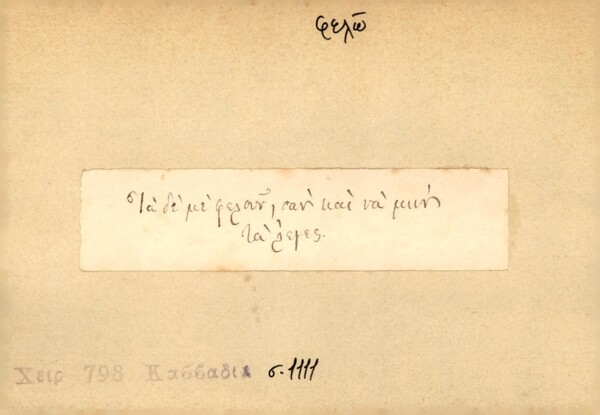 φελῶ
Τὰ δὲ μὲ φελοῦν, σὰν καὶ νὰ μὴν
τὰ ἔλεγες.
Χειρ 798 Κασσαδια σ. 1111